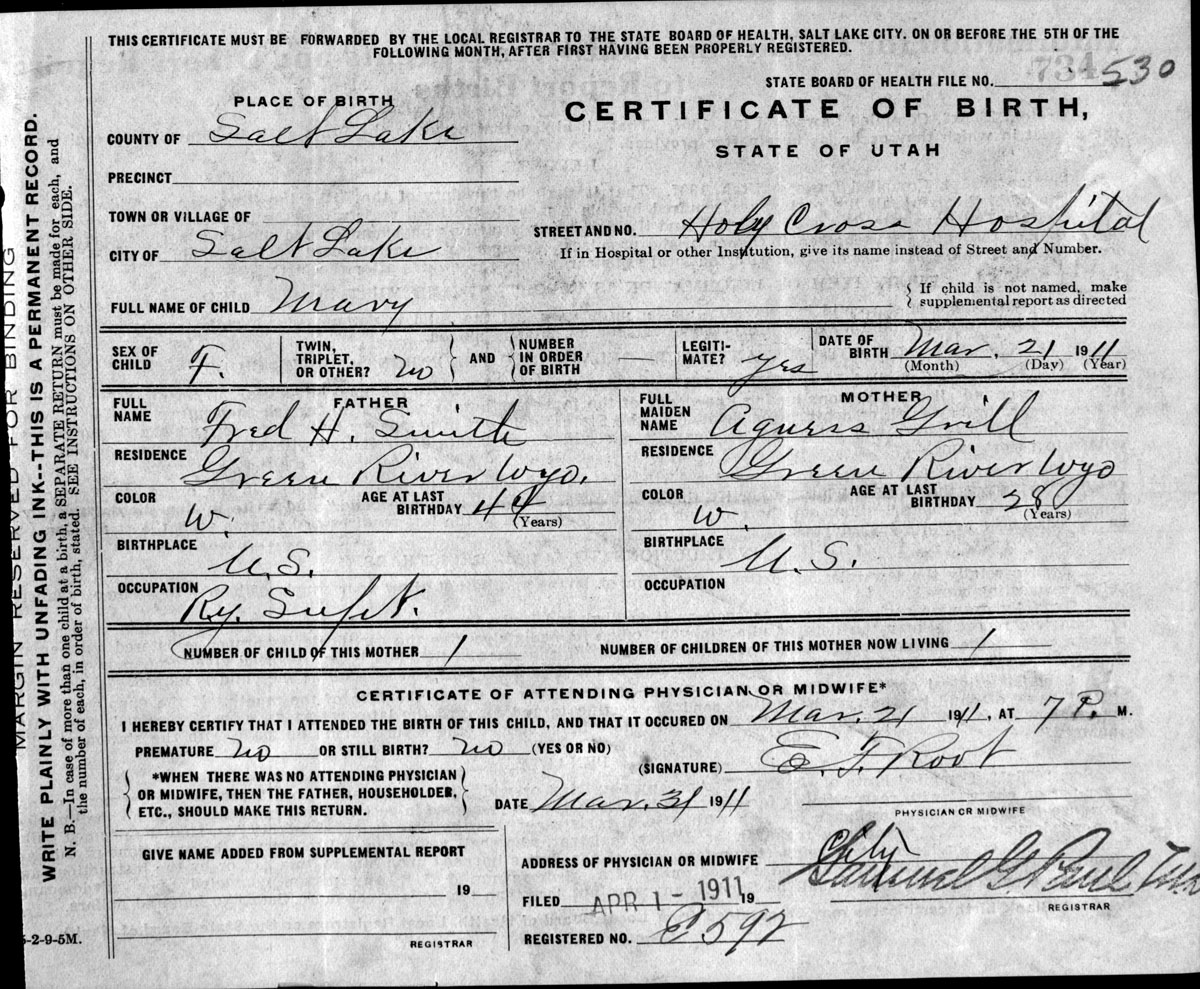 THIS CERTIFICATE MUST BE FORWARDED BY THE LOCAL REGISTRAR TO THE STATE BOARD OF HEALTH, SALT LAKE CITY. ON OR BEFORE THE 5TH OF THE
FOLLOWING MONTH, AFTER FIRST HAVING BEEN PROPERLY REGISTERED.
STATE BOARD OF HEALTH FILE NO. 734 530
PLACE OF BIRTH
CERTIFICATE OF BIRTH,
COUNTY OF Salt Lake
STATE OF UTAH
PRECINCT
TOWN OR VILLAGE OF
STREET AND NO. Holy Cross Hospital
CITY OF Salt Lake
If in Hospital or other Institution, give its name instead of Street and Number.
FULL NAME OF CHILD Mary
If child is not named, make
supplemental report as directed
SEX OF CHILD F. TWIN, TRIPLET, OR OTHER? no AND NUMBER IN ORDER OF BIRTH — LEGITI-MATE? yes DATE OF BIRTH Mar. 21 1911
(Month) (Day) (Year)
FATHER
MOTHER
FULL NAME Fred H. Smith
FULL MAIDEN NAME Agness Grill
RESIDENCE Green River Wyo.
RESIDENCE Green River Wyo
COLOR W. AGE AT LAST BIRTHDAY (Years)
COLOR W. AGE AT LAST BIRTHDAY 28 (Years)
BIRTHPLACE U.S.
BIRTHPLACE U.S.
OCCUPATION Ry. Supt.
OCCUPATION
NUMBER OF CHILD OF THIS MOTHER 1 NUMBER OF CHILDREN OF THIS MOTHER NOW LIVING 1
CERTIFICATE OF ATTENDING PHYSICIAN OR MIDWIFE*
I HEREBY CERTIFY THAT I ATTENDED THE BIRTH OF THIS CHILD, AND THAT IT OCCURED ON Mar. 21 1911, AT 7 P. M.
PREMATURE no OR STILL BIRTH? no (YES OR NO)
(SIGNATURE) E. F. Root
*WHEN THERE WAS NO ATTENDING PHYSICIAN
OR MIDWIFE, THEN THE FATHER, HOUSEHOLDER,
ETC., SHOULD MAKE THIS RETURN.
DATE Mar. 31 1911
PHYSICIAN OR MIDWIFE
GIVE NAME ADDED FROM SUPPLEMENTAL REPORT
19
REGISTRAR
ADDRESS OF PHYSICIAN OR MIDWIFE City
FILED APR 1 - 1911 19
Samuel G. Paul
REGISTRAR
REGISTERED NO. E 592
5-2-9-5M.
MARGIN RESERVED FOR BINDING
WRITE PLAINLY WITH UNFADING INK--THIS IS A PERMANENT RECORD.
N. B.—In case of more than one child at a birth, a SEPARATE RETURN must be made for each, and
the number of each, in order of birth, stated. SEE INSTRUCTIONS ON OTHER SIDE.